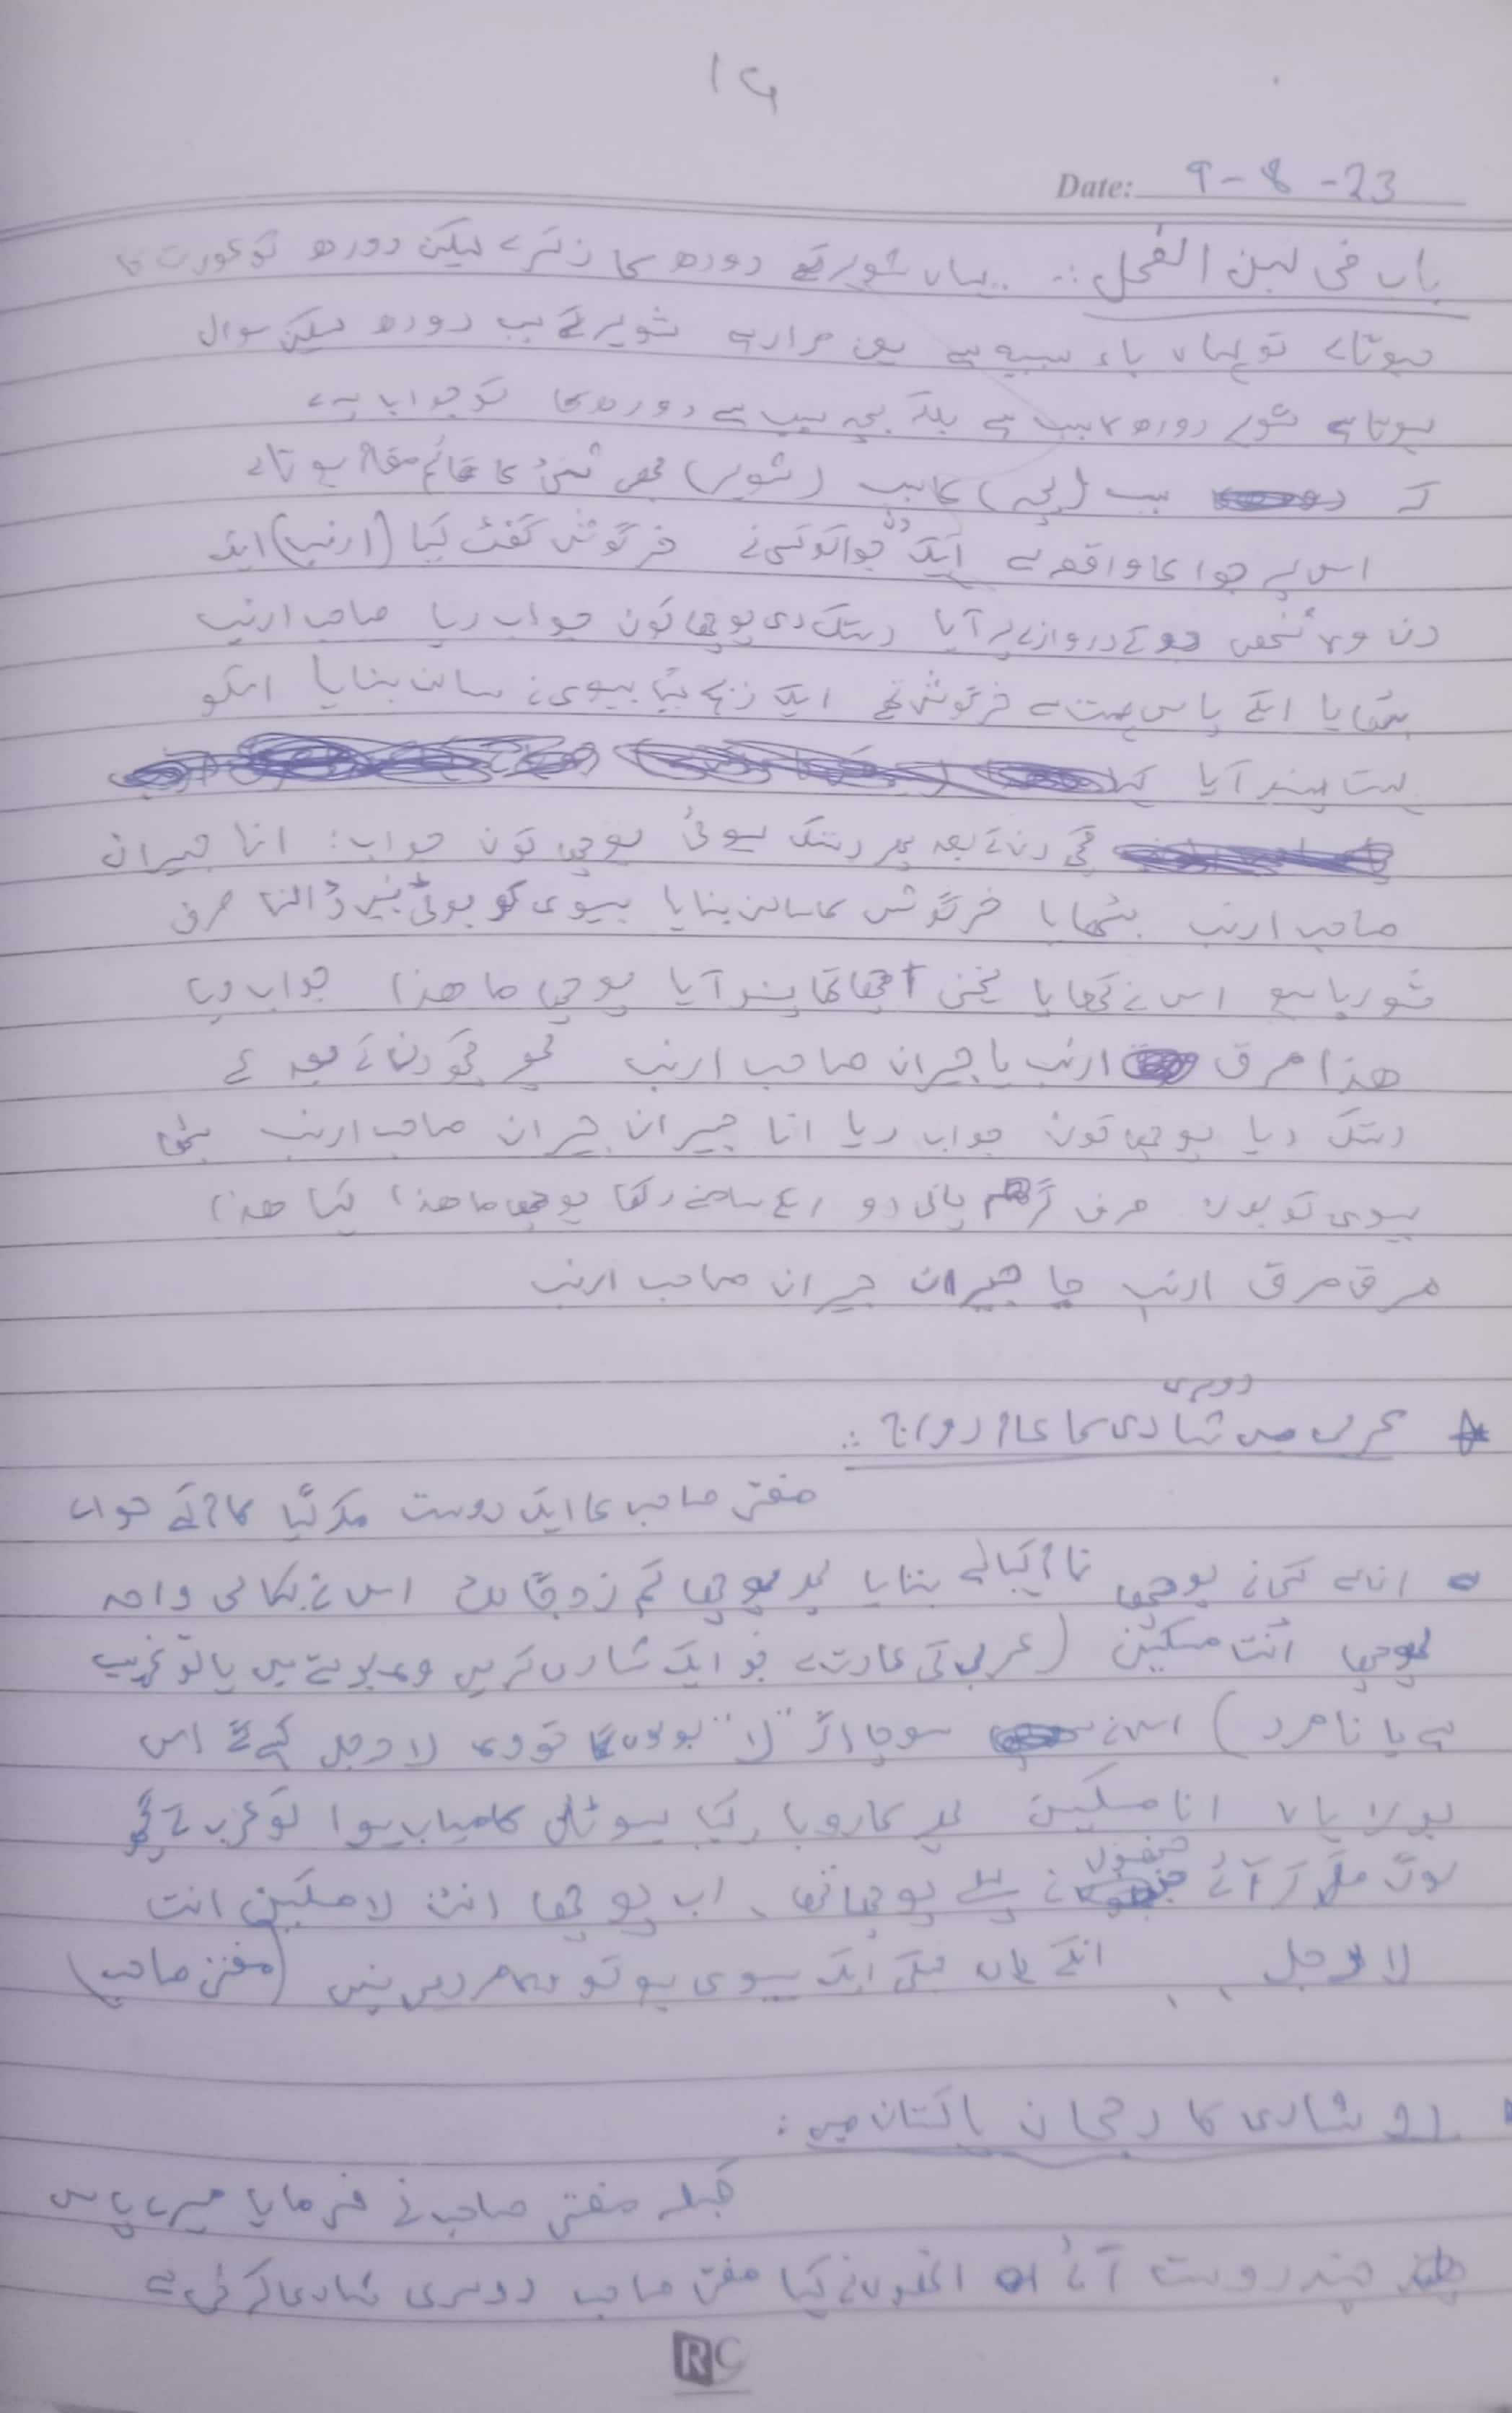 ١٦
Date: 9-8-23
باب فی لبن الفحل :. یہاں شوہر کے دودھ کا ذکر ہے لیکن دودھ تو عورت کا
ہوتا ہے تو یہاں باء سببیہ ہے یعنی مراد ہے شوہر کے سبب دودھ لیکن سوال
ہوتا ہے شوہر دودھ کا سبب ہے بلکہ بچہ سبب ہے دودھ کا تو جواب یہ ہے
کہ سبب (بچہ) کا سبب (شوہر) بھی شئ کا قائم مقام ہوتا ہے
اس پر جوا کا واقعہ ہے ایک دن جوا کو کسی نے خرگوش گفٹ کیا (ارنب) ایک
دن وہ شخص جو کے دروازے پر آیا دستک دی پوچھا کون جواب دیا صاحب ارنب
بٹھایا انکے پاس بہت سے خرگوش تھے ایک ذبح کیا بیوی نے سالن بنایا اسکو
بہت پسند آیا
کچھ دن کے بعد پھر دستک ہوئی پوچھی کون جواب: انا جیران
صاحب ارنب بٹھایا خرگوش کا سالن بنایا بیوی کو بوٹی نہیں ڈالنا صرف
شوربا ہو اس نے کھایا یخنی اچھا تھا پسند آیا پوچھی ما هذا جواب دیا
هذا مرق ارنب یا جیران صاحب ارنب پھر کچھ دن کے بعد
دستک دیا پوچھی کون جواب دیا انا جیران جیران صاحب ارنب بٹھا
بیوی کو بولا صرف گرم پانی دو سامنے رکھا پوچھی ما هذا کہا هذا
مرق مرق ارنب یا جیران جیران صاحب ارنب
عرب میں دوسری شادی کا عام رواج :.
مفتی صاحب کا ایک دوست مکہ گیا کام کے
ان سے کسی نے پوچھا نام کیا ہے بتایا پھر پوچھا کم زوجۃ لك اس نے کہا لی واحد
پوچھی انت مسکین (عربی کی عادت ہے جو ایک شادی کریں وہ بولتے ہیں یا تو غریب
ہے یا نامرد) اس نے سوچا اگر "لا" بولوں گا تو وہ لا رجل کہے گا اس
بولا ہاں انا مسکین پھر کاروبار کیا ہوٹل کامیاب ہوا تو عرب کے کچھ
لوگ ملکر آئے جنھوں نے پہلے پوچھا تھا، اب پوچھا انت لا مسکین انت
لا رجل انکے ہاں جسکی ایک بیوی ہو تو وہ مرد ہی نہیں (مفتی صاحب)
شادی کا رجحان پاکستان میں :
قبلہ مفتی صاحب نے فرمایا میرے پاس
چند دوست آئے انھوں نے کہا مفتی صاحب دوسری شادی کرنی ہے
RC